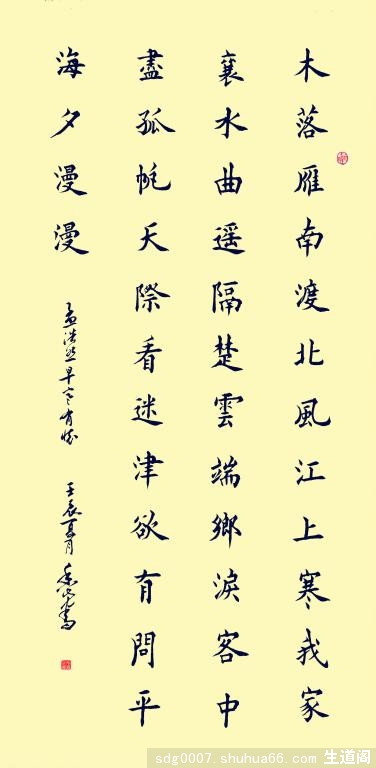 木落雁南渡北風江上寒我家
襄水曲遥隔楚雲端鄉淚客中
盡孤帆天際看迷津欲有問平
海夕漫漫
孟浩然早寒有怀
壬辰夏月
sdg0007.shuhua66.com 生道阁